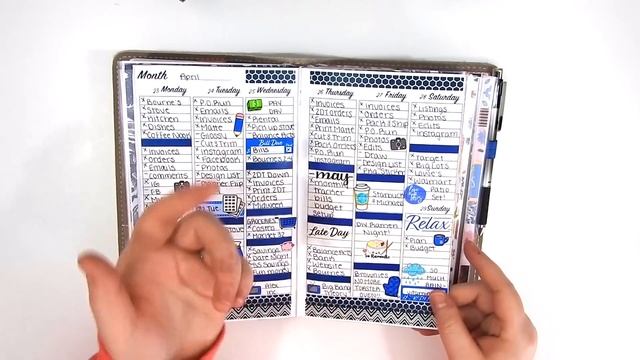 Month April
23 Monday
Bourne's
Steve
Kitchen
Dishes
Coffee Week
invoices
Orders
Emails
comments
IG
FB
24 Tuesday
P.O. Run
Emails
Invoices
Matte
Glossy
Cut & Trim
Instagram
Facebook
Photos
Design List
Tue.
25 Wednesday
PAY
DAY
Rental
Pick up Stove
Balance Accts
Bill Due
Bills
Bourne's
2DT Down
Invoices
Print 2DT
Orders
Midweek
Casen
Market 32
Savings
Date Night
Savings
Alex
Inc
26 Thursday
Invoices
2DT Orders
Emails
Print Matte
Cut & Trim
Pack Orders
P.O. Run
Instagram
may
monthly
tracker
bills
budget
setup
Late Day
Balance
Bank
Website
Bourne's
Big Bang
Theory
27 Friday
Invoices
Orders
Pack & Ship
P.O. Run
Photos
Edits
Draw
Design List
Pia
Michael
DIY Ramen
Night!
Brownies
NO MORE
TOASTER
OVEN!
28 Saturday
Listings
Photos
Edits
Instagram
Target
Big Lots
Lowe's
Walmart
Set
29 Sunday
Relax
Plan
Budget
SO
MUCH
RAIN